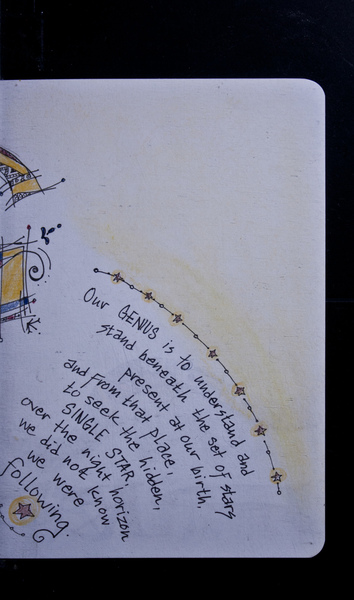 Our GENUS is to understand and
stand beneath the set of stars
present at our birth,
and from that place,
to seek the hidden,
SINGLE STAR,
over the night horizon
we did not know
we were
following.